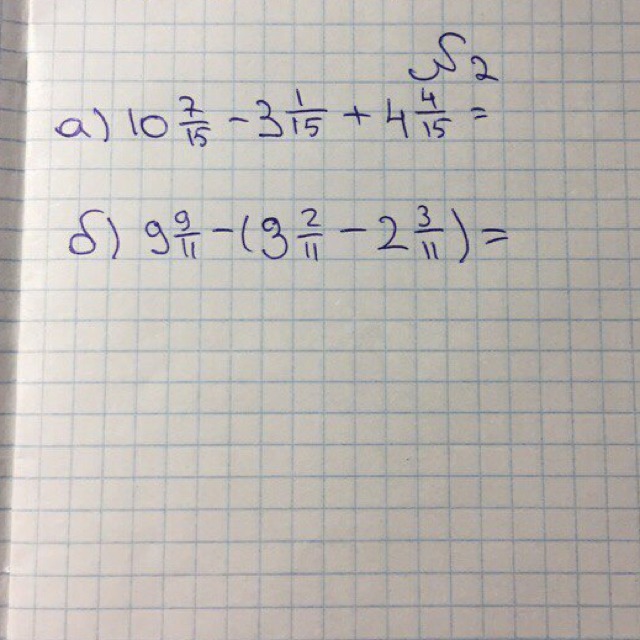 2
а) 10 7/15 - 3 1/15 + 4 4/15 =
б) 9 9/11 - (9 2/11 - 2 3/11) =